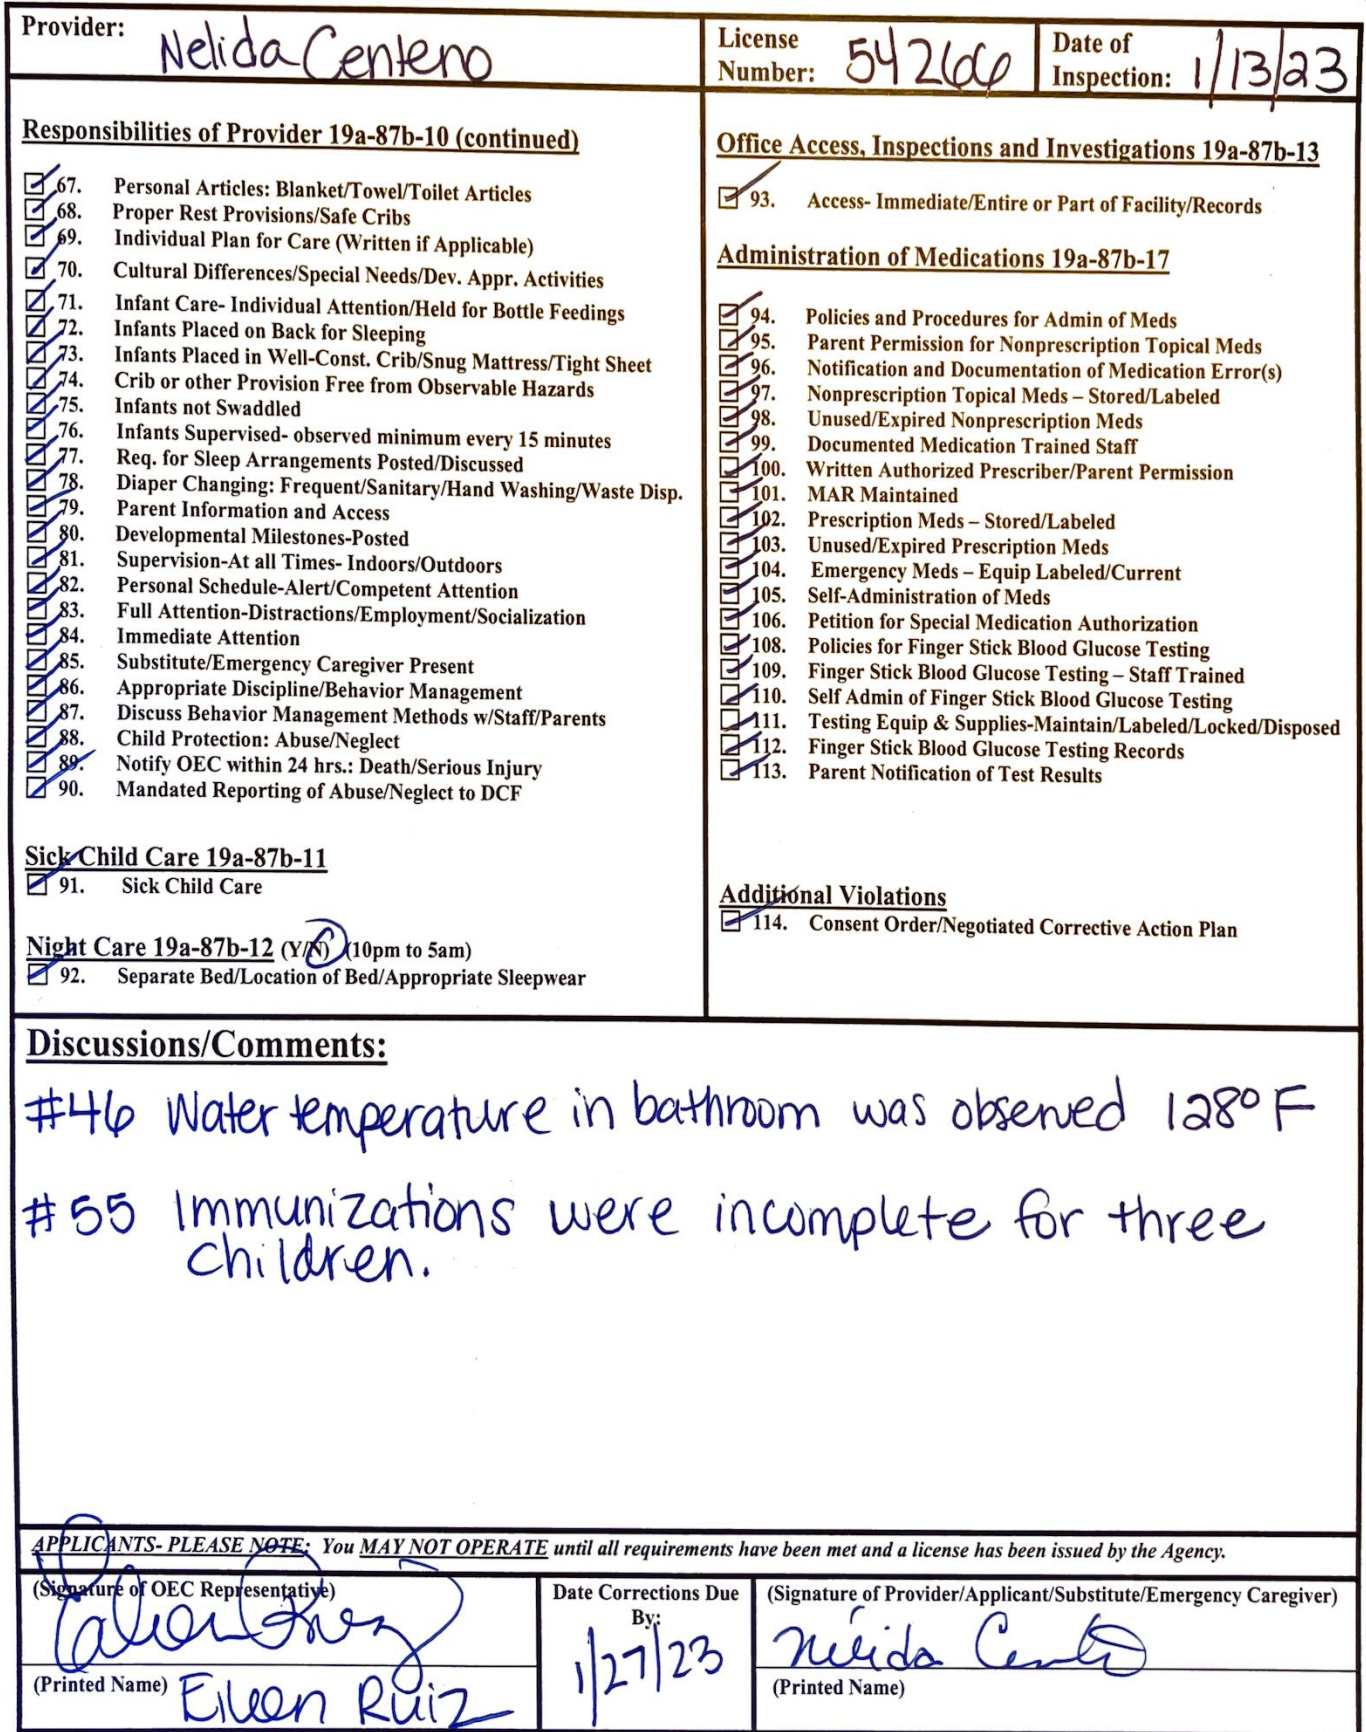 Provider: Nelida Centeno
License Number: 54266
Date of Inspection: 1/13/23
Responsibilities of Provider 19a-87b-10 (continued)
67. Personal Articles: Blanket/Towel/Toilet Articles
68. Proper Rest Provisions/Safe Cribs
69. Individual Plan for Care (Written if Applicable)
70. Cultural Differences/Special Needs/Dev. Appr. Activities
71. Infant Care- Individual Attention/Held for Bottle Feedings
72. Infants Placed on Back for Sleeping
73. Infants Placed in Well-Const. Crib/Snug Mattress/Tight Sheet
74. Crib or other Provision Free from Observable Hazards
75. Infants not Swaddled
76. Infants Supervised- observed minimum every 15 minutes
77. Req. for Sleep Arrangements Posted/Discussed
78. Diaper Changing: Frequent/Sanitary/Hand Washing/Waste Disp.
79. Parent Information and Access
80. Developmental Milestones-Posted
81. Supervision-At all Times- Indoors/Outdoors
82. Personal Schedule-Alert/Competent Attention
83. Full Attention-Distractions/Employment/Socialization
84. Immediate Attention
85. Substitute/Emergency Caregiver Present
86. Appropriate Discipline/Behavior Management
87. Discuss Behavior Management Methods w/Staff/Parents
88. Child Protection: Abuse/Neglect
89. Notify OEC within 24 hrs.: Death/Serious Injury
90. Mandated Reporting of Abuse/Neglect to DCF
Sick Child Care 19a-87b-11
91. Sick Child Care
Night Care 19a-87b-12 (Y/N) (10pm to 5am)
92. Separate Bed/Location of Bed/Appropriate Sleepwear
Office Access, Inspections and Investigations 19a-87b-13
93. Access- Immediate/Entire or Part of Facility/Records
Administration of Medications 19a-87b-17
94. Policies and Procedures for Admin of Meds
95. Parent Permission for Nonprescription Topical Meds
96. Notification and Documentation of Medication Error(s)
97. Nonprescription Topical Meds – Stored/Labeled
98. Unused/Expired Nonprescription Meds
99. Documented Medication Trained Staff
100. Written Authorized Prescriber/Parent Permission
101. MAR Maintained
102. Prescription Meds – Stored/Labeled
103. Unused/Expired Prescription Meds
104. Emergency Meds – Equip Labeled/Current
105. Self-Administration of Meds
106. Petition for Special Medication Authorization
108. Policies for Finger Stick Blood Glucose Testing
109. Finger Stick Blood Glucose Testing – Staff Trained
110. Self Admin of Finger Stick Blood Glucose Testing
111. Testing Equip & Supplies-Maintain/Labeled/Locked/Disposed
112. Finger Stick Blood Glucose Testing Records
113. Parent Notification of Test Results
Additional Violations
114. Consent Order/Negotiated Corrective Action Plan
Discussions/Comments:
#46 Water temperature in bathroom was observed 128° F
#55 Immunizations were incomplete for three
children.
APPLICANTS- PLEASE NOTE: You MAY NOT OPERATE until all requirements have been met and a license has been issued by the Agency.
(Signature of OEC Representative)
Eileen Ruiz
(Printed Name) Eileen Ruiz
Date Corrections Due
By:
1/27/23
(Signature of Provider/Applicant/Substitute/Emergency Caregiver)
Nelida Centeno
(Printed Name)